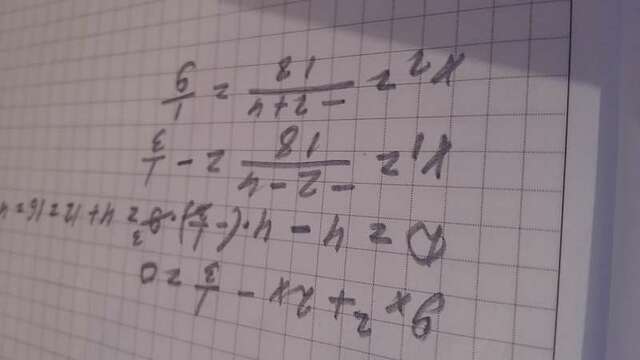 9x² + 2x - 1/3 = 0
D = 4 - 4·(-1/3)·9³ = 4 + 12 = 16 = 4
x1 = -2-4/18 = -1/3
x2 = -2+4/18 = 1/9